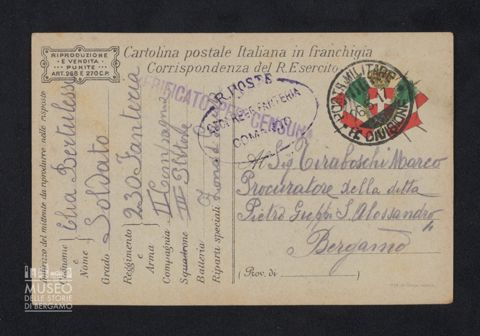 RIPRODUZIONE
E VENDITA
PUNITE
ART. 268 E 270 C.P.
Cartolina postale Italiana in franchigia
Corrispondenza del R. Esercito
VERIFICATO PER CENSURA
R. POSTE
FANTERIA
COMANDO
POSTA MILITARE
Al Sig. Tiraboschi Marco
Procuratore della ditta
Pietro S. Alessandro
Bergamo
(Prov. di )
Indirizzo del mittente da riprodurre nelle risposte
Cognome e Nome Elia Bertulessi
Grado Soldato
Reggimento e Arma 230 Fanteria
Compagnia III Compagnia
Squadrone III
Batteria
Riparti speciali Zona di
MUSEO
DELLE STORIE
DI BERGAMO